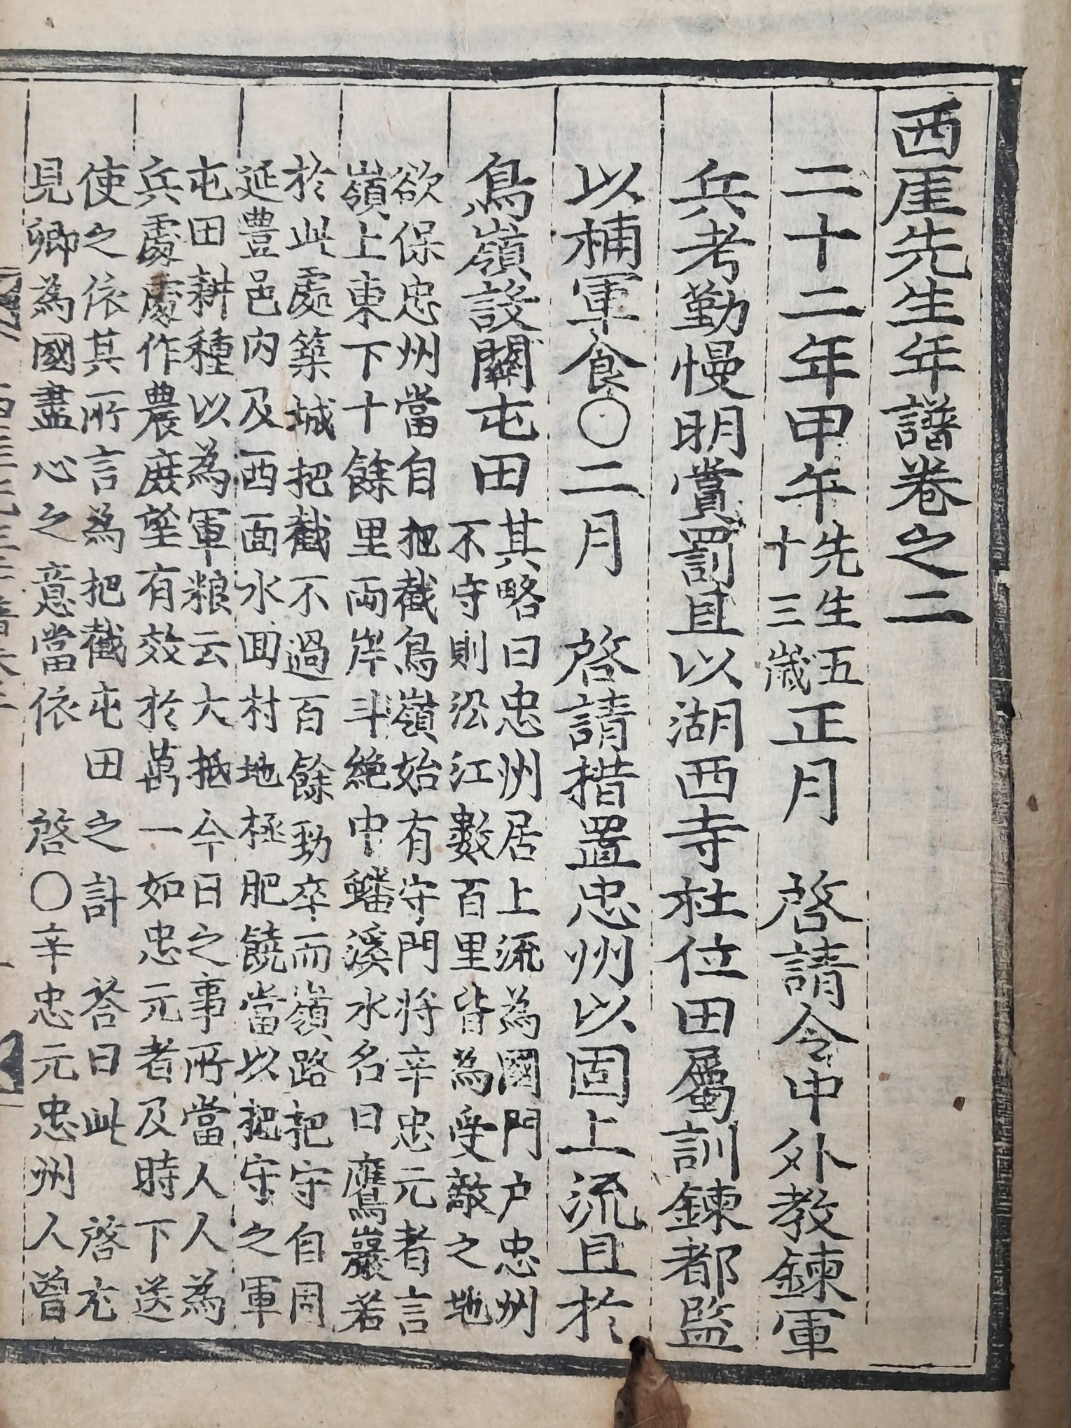 西厓先生年譜卷之二
二十二年甲午先生五十三歲正月　啓請令中外教鍊軍
兵考勤慢明賞罰且以湖西寺社位田屬訓鍊都監
以補軍食〇二月　啓請措置忠州以固上流且於
鳥嶺設關屯田
其略曰忠州居上流為國門户忠州
不守則沿江數百里皆為受敵之地
欲保忠州當自把截鳥嶺始有守門將辛忠元者言
嶺上東下十餘里両岸斗絶中蟠溪水名曰鷹巖若
於此處築城把截不過百餘勁卒而嶺路把守自固
延豊邑内及西面水回村地極肥饒當以把守之軍
屯田耕種以為軍粮云大抵今日之事所當人人為
兵處處作農庶望有效於萬一如忠元者及時下送
使之依其所言為把截屯田之計　答曰此　啓尤
見卿為國盡心之意當依　啓〇辛忠元忠州人曾